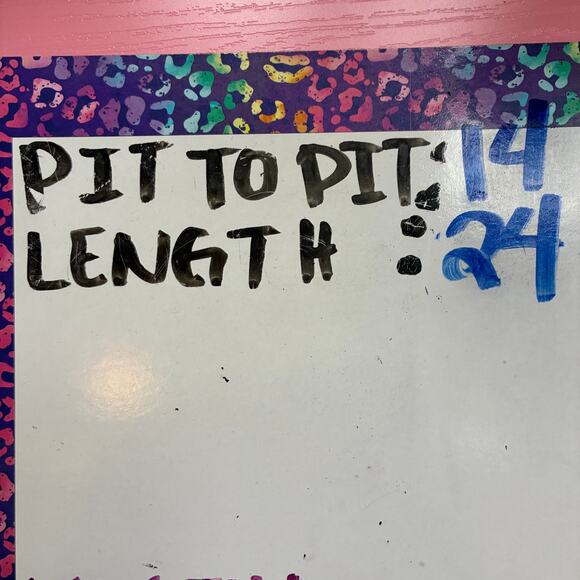 PIT TO PIT: 14
LENGTH : 24